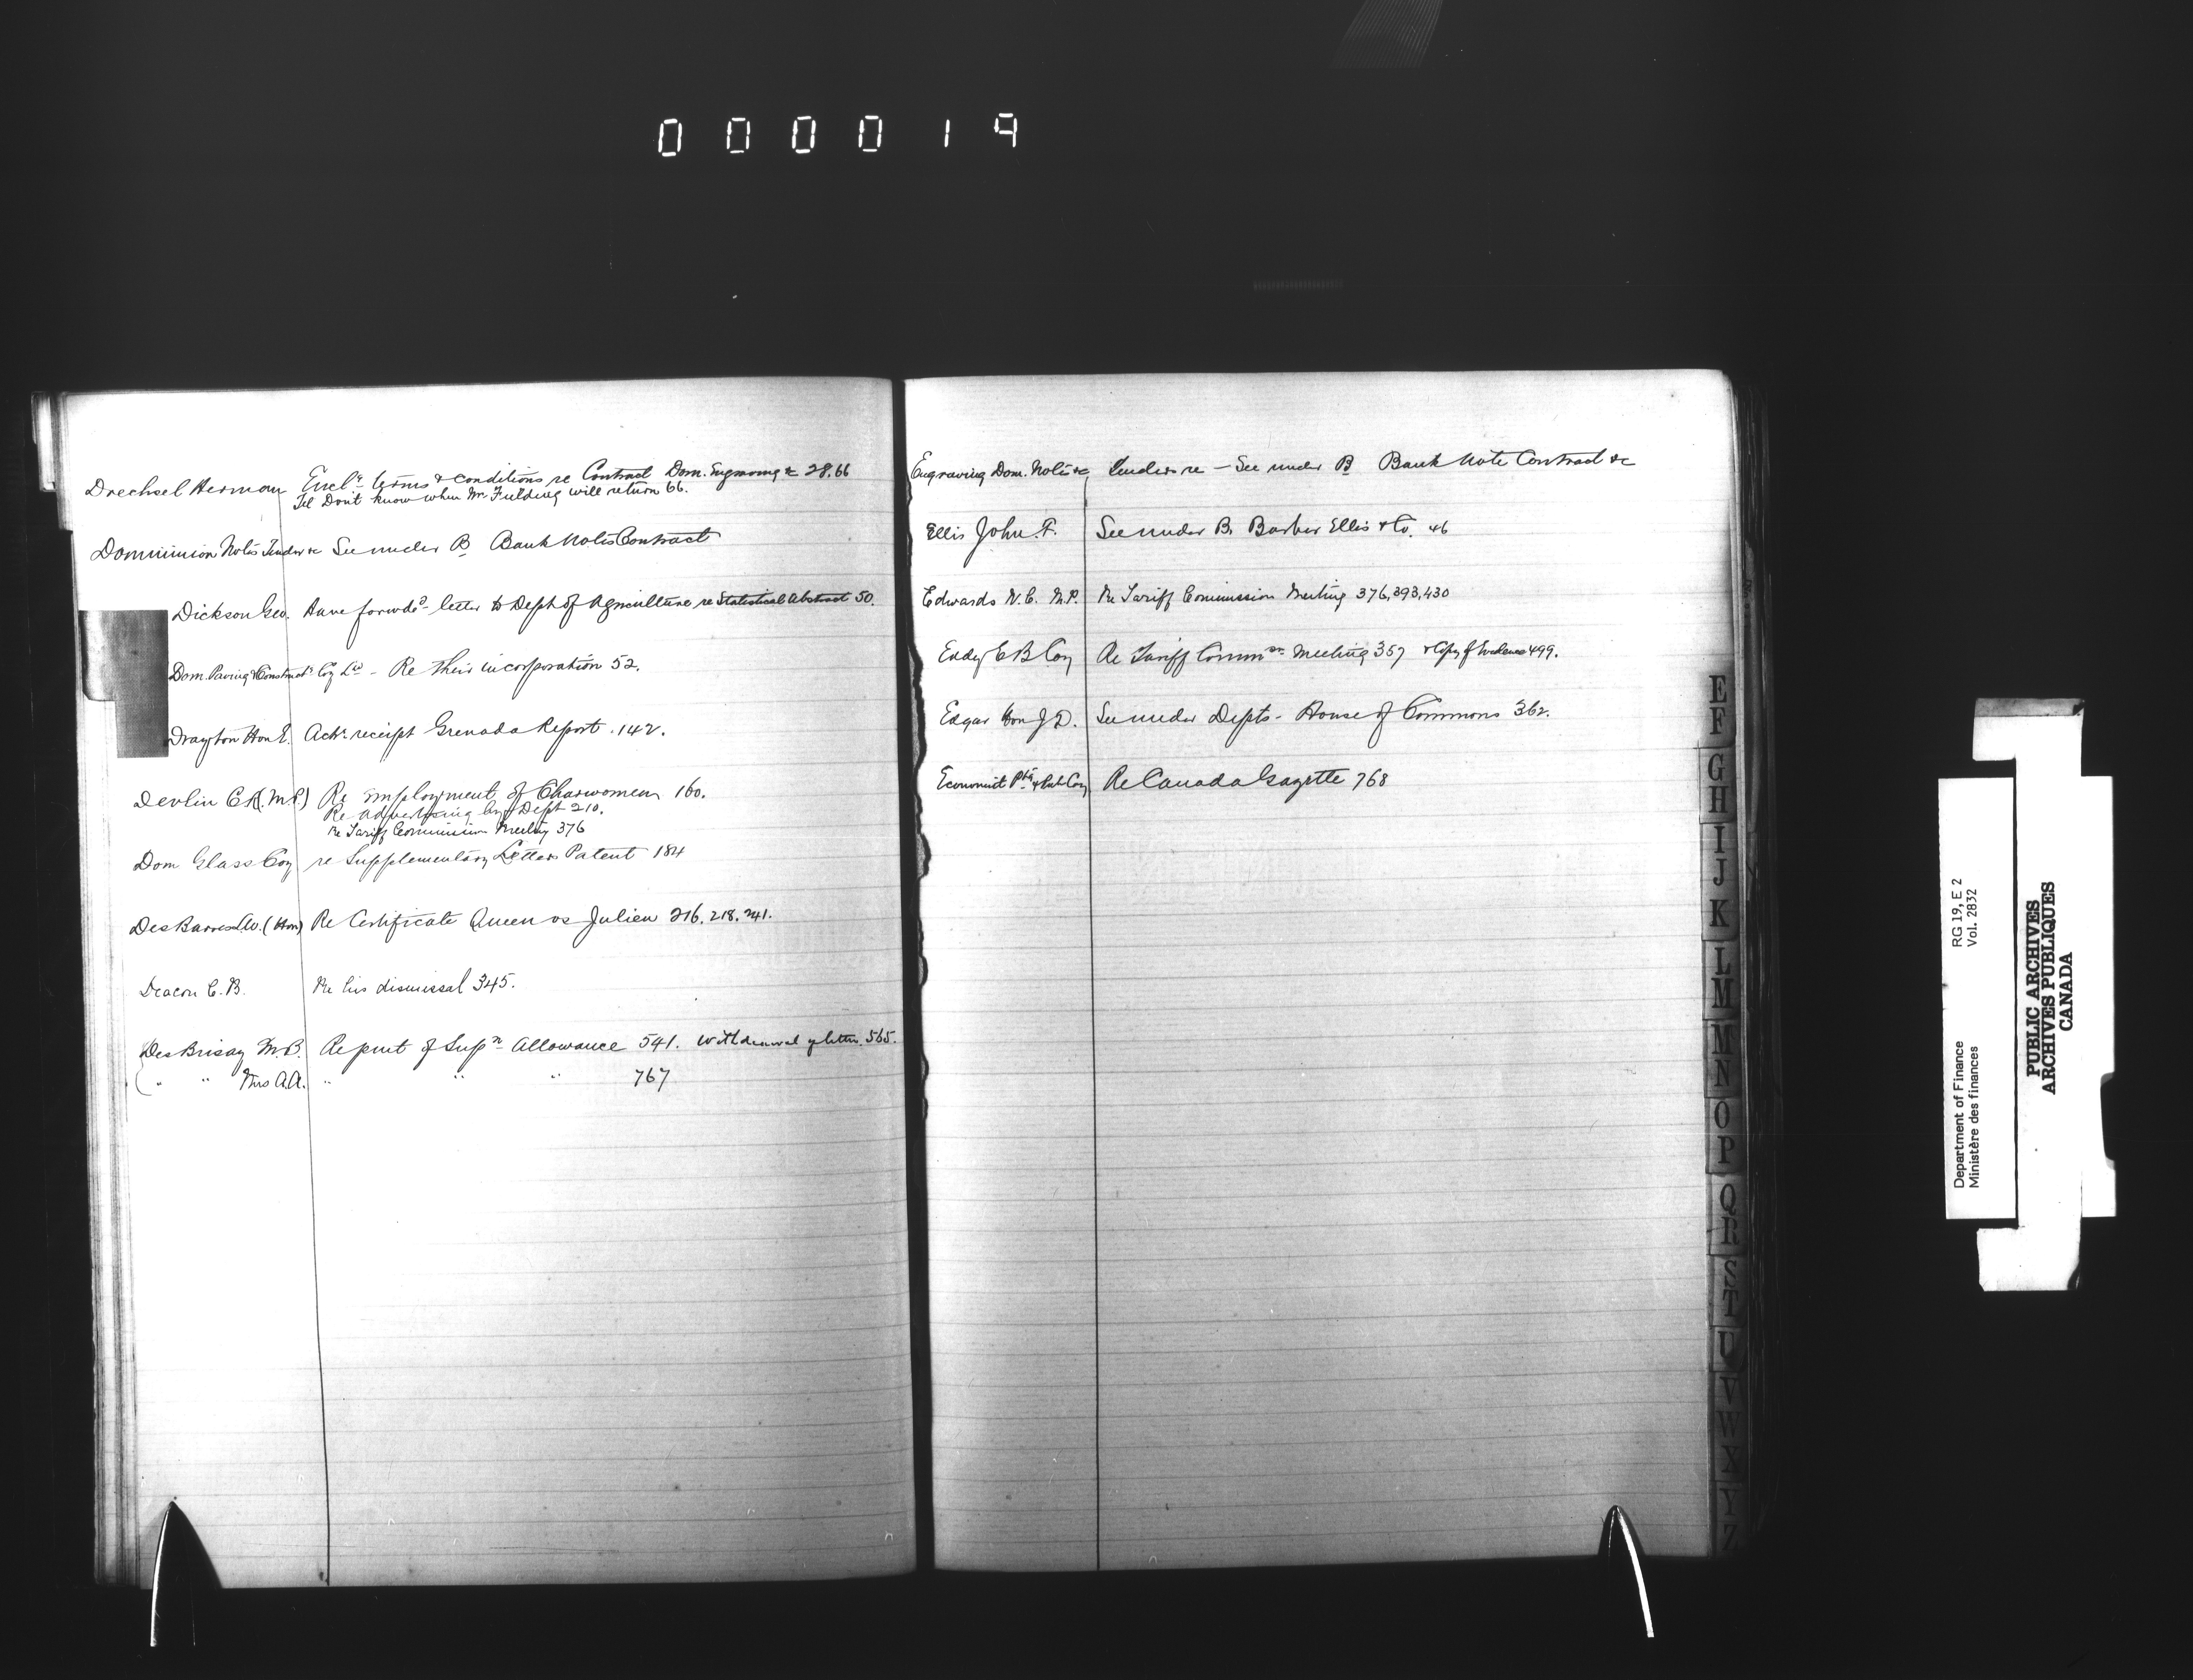 000019
Drechsel Herman Encl^g terms & conditions re Contract Dom. Engraving &c 28.66
Tel Don't know when Mr Fielding will return 66.
Dominion Notes Tender &c See under B Bank Notes Contract
Dickson Geo. Have forwd^d letter to Dept of Agriculture re Statistical Abstract 50.
Dom. Paving & Construct^n Coy L^d - Re their incorporation 52.
Drayton Hon E. Ack^g receipt Grenada Report. 142.
Devlin C R (M.P.) Re Employment of Charwomen 160.
Re advertising by Dept 210.
Re Tariff Commission Meeting 376
Dom Glass Coy re Supplementary Letters Patent 184
DesBarres L.W. (Hon) Re Certificate Queen vs Julien 216. 218. 241.
Deacon C. B. Re his dismissal 345.
DesBrisay M.B. Re pmt of Sup^n Allowance 541. Withdrawal of letter. 565.
( " " Mrs A.A. " " " 767
Engraving Dom. Notes &c Tenders re - See under B Bank Note Contract &c
Ellis John F. See under B. Barber Ellis & Co. 46
Edwards W. C. M.P. Re Tariff Commission Meeting 376, 393, 430
Eddy E B Coy Re Tariff Comm^on Meeting 357 & Copy of Evidence 499.
Edgar Hon J D. See under Depts - House of Commons 362.
Economist P^tg & Pub Coy Re Canada Gazette 768
E
F
G
H
I
J
K
L
M
M
N
O
P
Q
R
S
T
U
V
W
X
Y
Z
RG 19, E 2
Vol. 2832
Department of Finance
Ministère des finances
PUBLIC ARCHIVES
ARCHIVES PUBLIQUES
CANADA